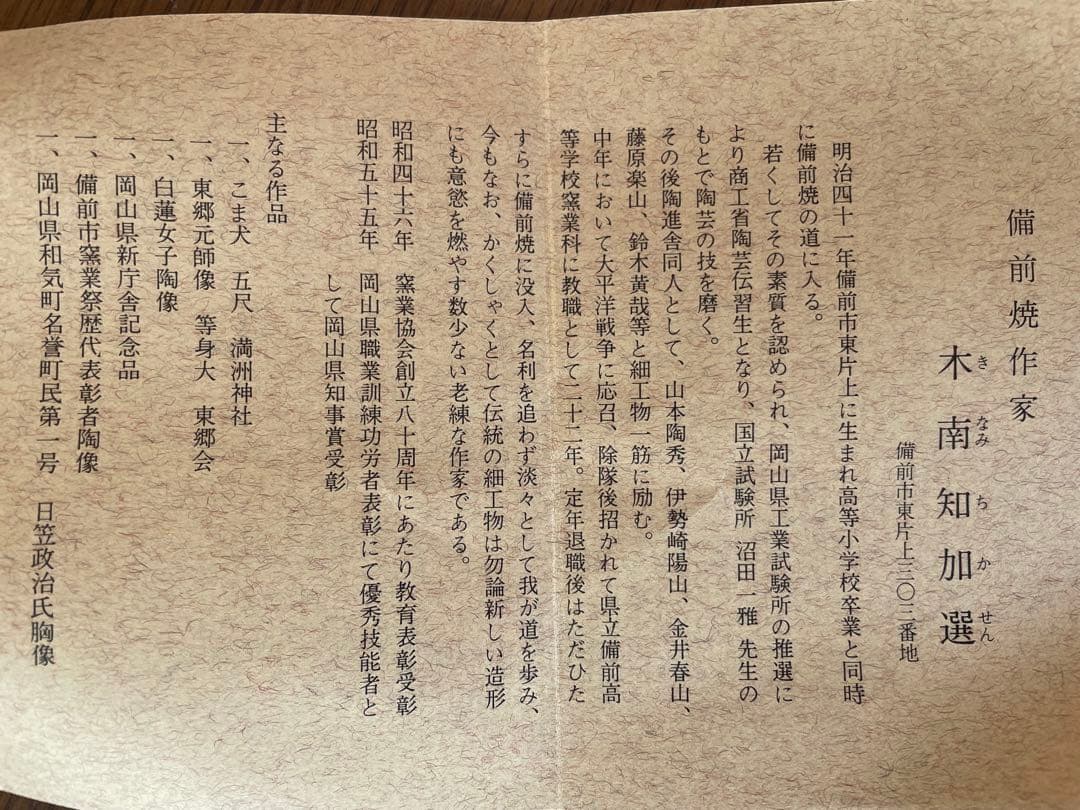 備前焼作家
木南知加選
き なみ ち か せん
備前市東片上三〇三番地
明治四十一年備前市東片上に生まれ高等小学校卒業と同時
に備前焼の道に入る。
若くしてその素質を認められ、岡山県工業試験所の推選に
より商工省陶芸伝習生となり、国立試験所 沼田一雅 先生の
もとで陶芸の技を磨く。
その後陶進舎同人として、山本陶秀、伊勢崎陽山、金井春山、
藤原楽山、鈴木黄哉等と細工物一筋に励む。
中年において大平洋戦争に応召、除隊後招かれて県立備前高
等学校窯業科に教職として二十二年。定年退職後はただひた
すらに備前焼に没入、名利を追わず淡々として我が道を歩み、
今もなお、かくしゃくとして伝統の細工物は勿論新しい造形
にも意慾を燃やす数少ない老練な作家である。
昭和四十六年 窯業協会創立八十周年にあたり教育表彰受彰
昭和五十五年 岡山県職業訓練功労者表彰にて優秀技能者と
して岡山県知事賞受彰
主なる作品
一、こま犬 五尺 満洲神社
一、東郷元師像 等身大 東郷会
一、白蓮女子陶像
一、岡山県新庁舎記念品
一、備前市窯業祭歴代表彰者陶像
一、岡山県和気町名誉町民第一号 日笠政治氏胸像